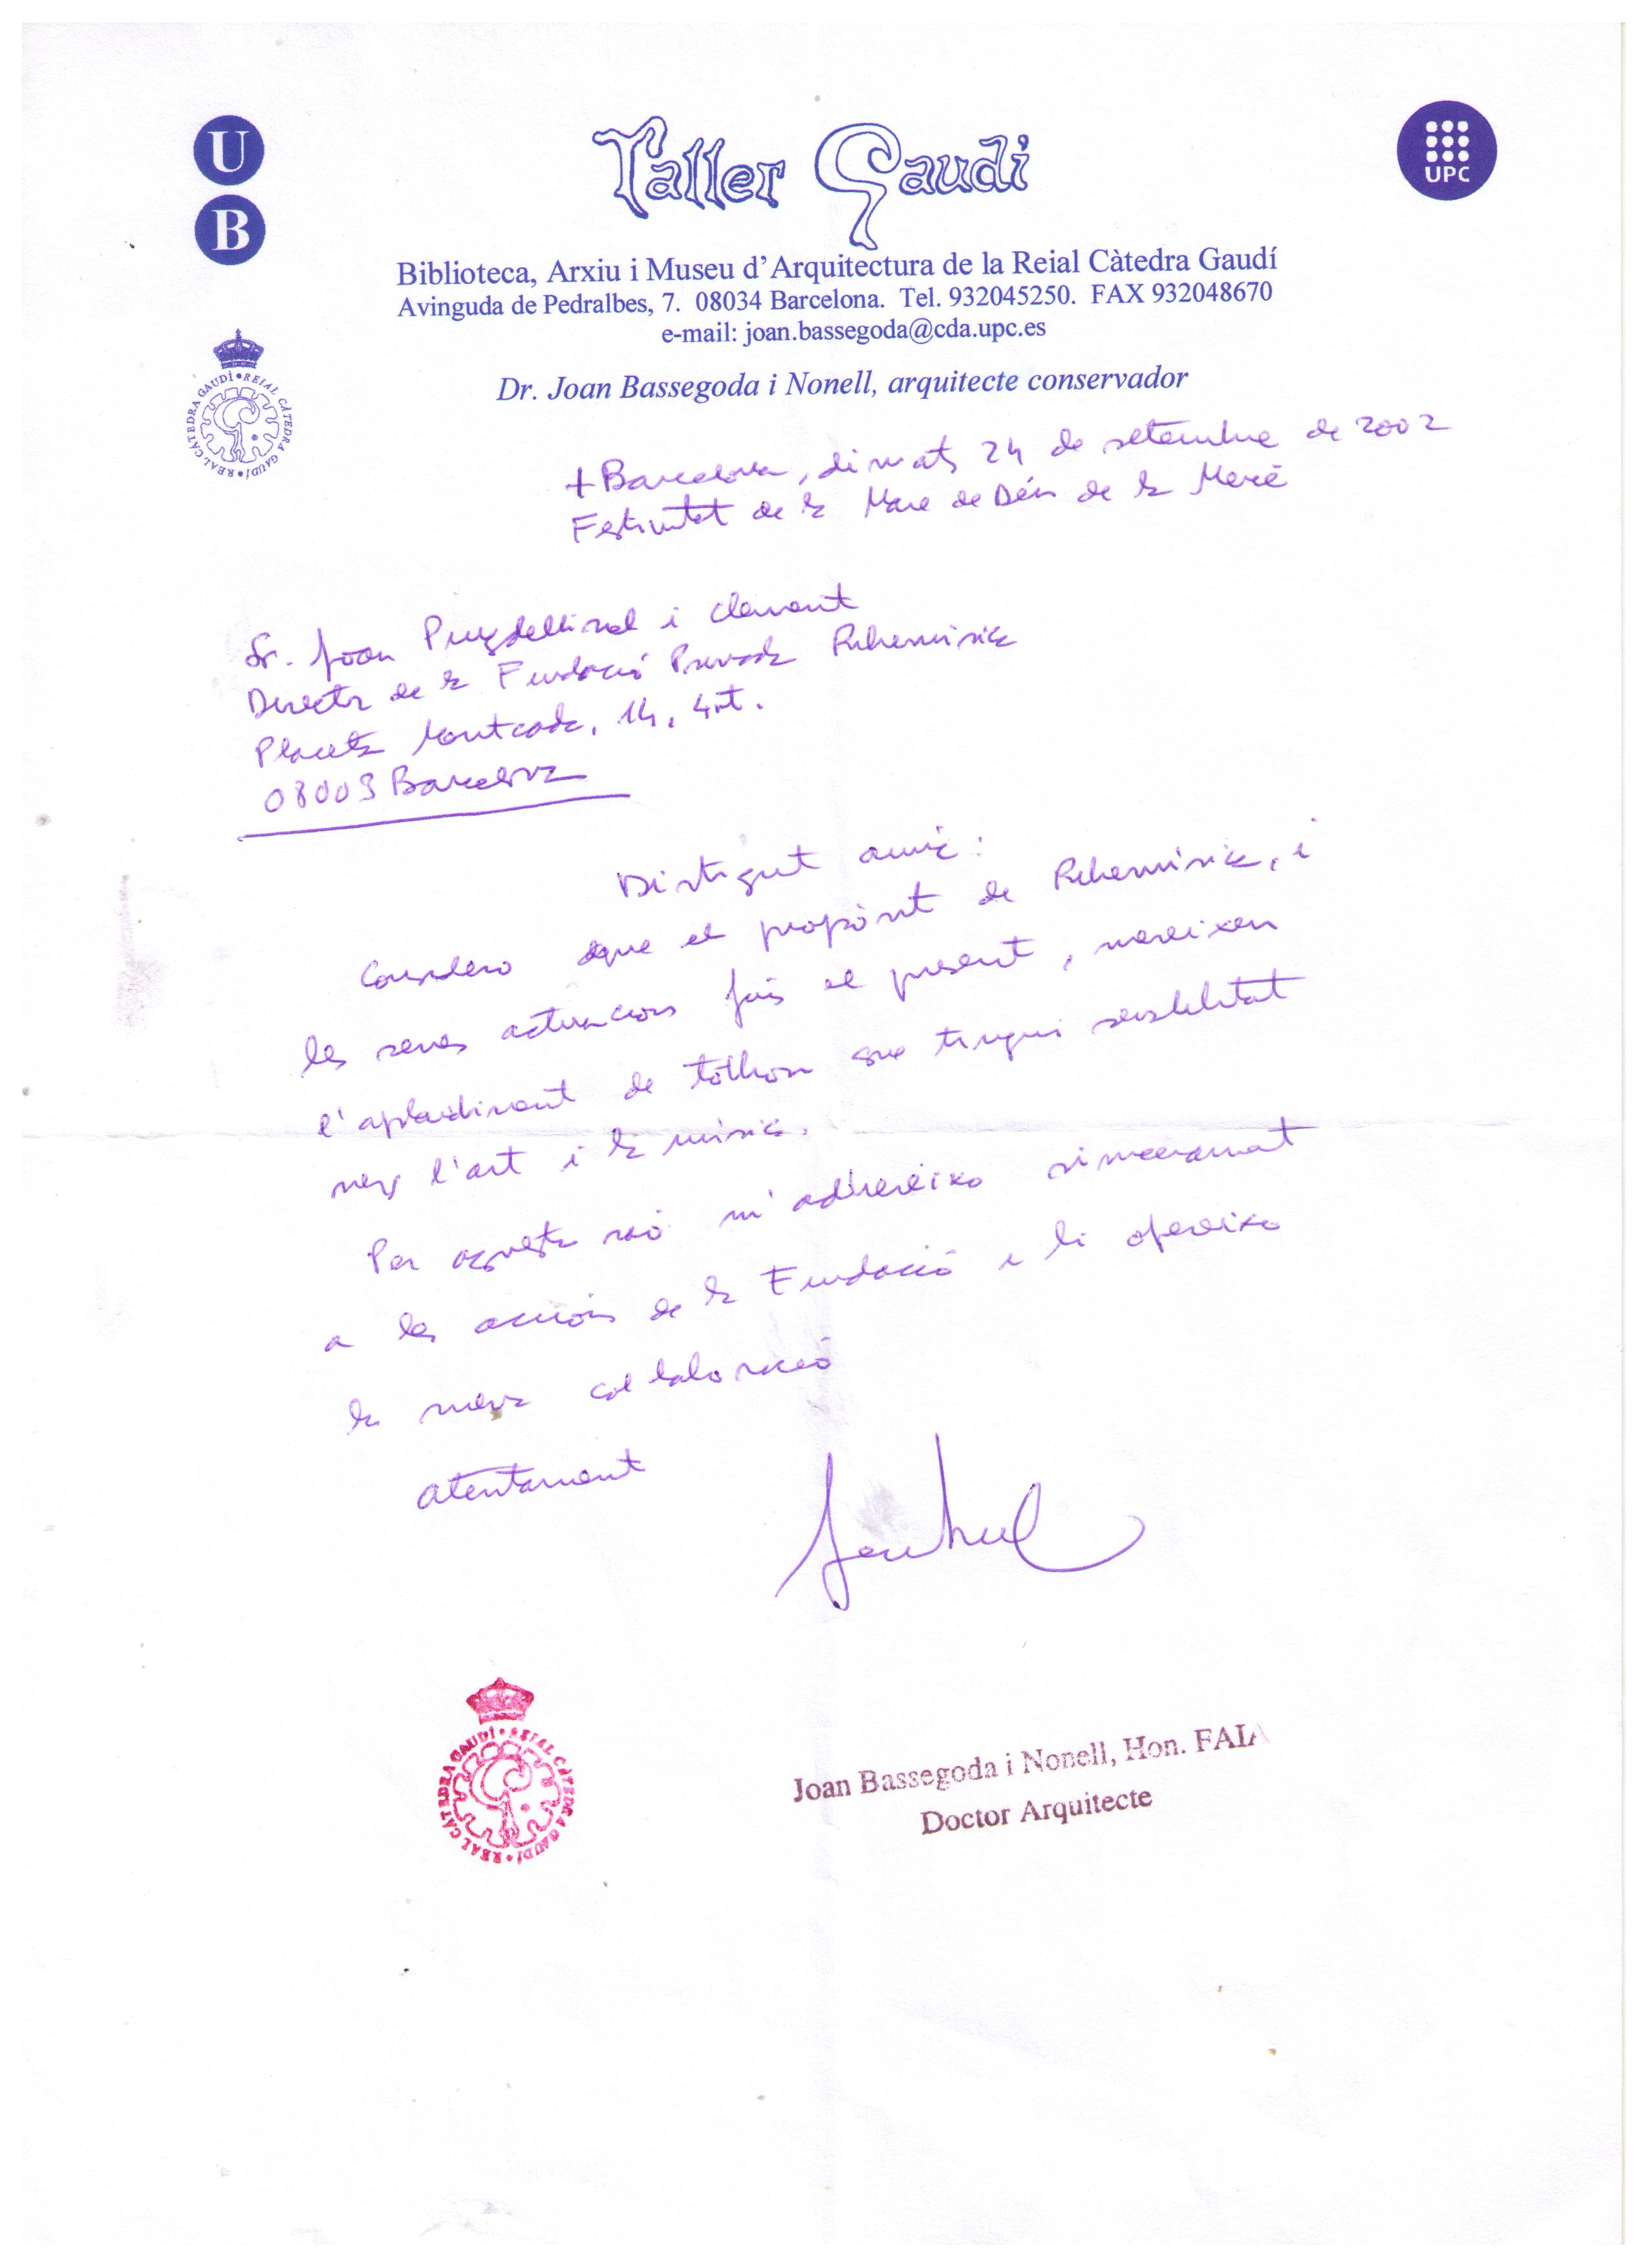 U
B
Taller Gaudí
UPC
Biblioteca, Arxiu i Museu d'Arquitectura de la Reial Càtedra Gaudí
Avinguda de Pedralbes, 7. 08034 Barcelona. Tel. 932045250. FAX 932048670
e-mail: joan.bassegoda@cda.upc.es
REIAL CÀTEDRA GAUDÍ • REAL CÁTEDRA GAUDÍ •
Dr. Joan Bassegoda i Nonell, arquitecte conservador
+Barcelona, dimats 24 de setembre de 2002
Festivitat de la Mare de Déu de la Mercè
Sr. Joan Puigdellívol i Climent
Director de la Fundació Privada
Placeta Montcada, 14, 4rt.
08003 Barcelona
Distigut amic:
Considero que el propòsit de , i
les seves actuacions fins el present, mereixen
l'aplaudiment de tothom que tingui sensibilitat
vers l'art i la música.
Per aquesta raó m'adhereixo sincerament
a les accions de la Fundació i li ofereixo
la meva col·laboració
atentament
REIAL CÀTEDRA GAUDÍ • REAL CÁTEDRA GAUDÍ •
Joan Bassegoda i Nonell, Hon. FAIA
Doctor Arquitecte